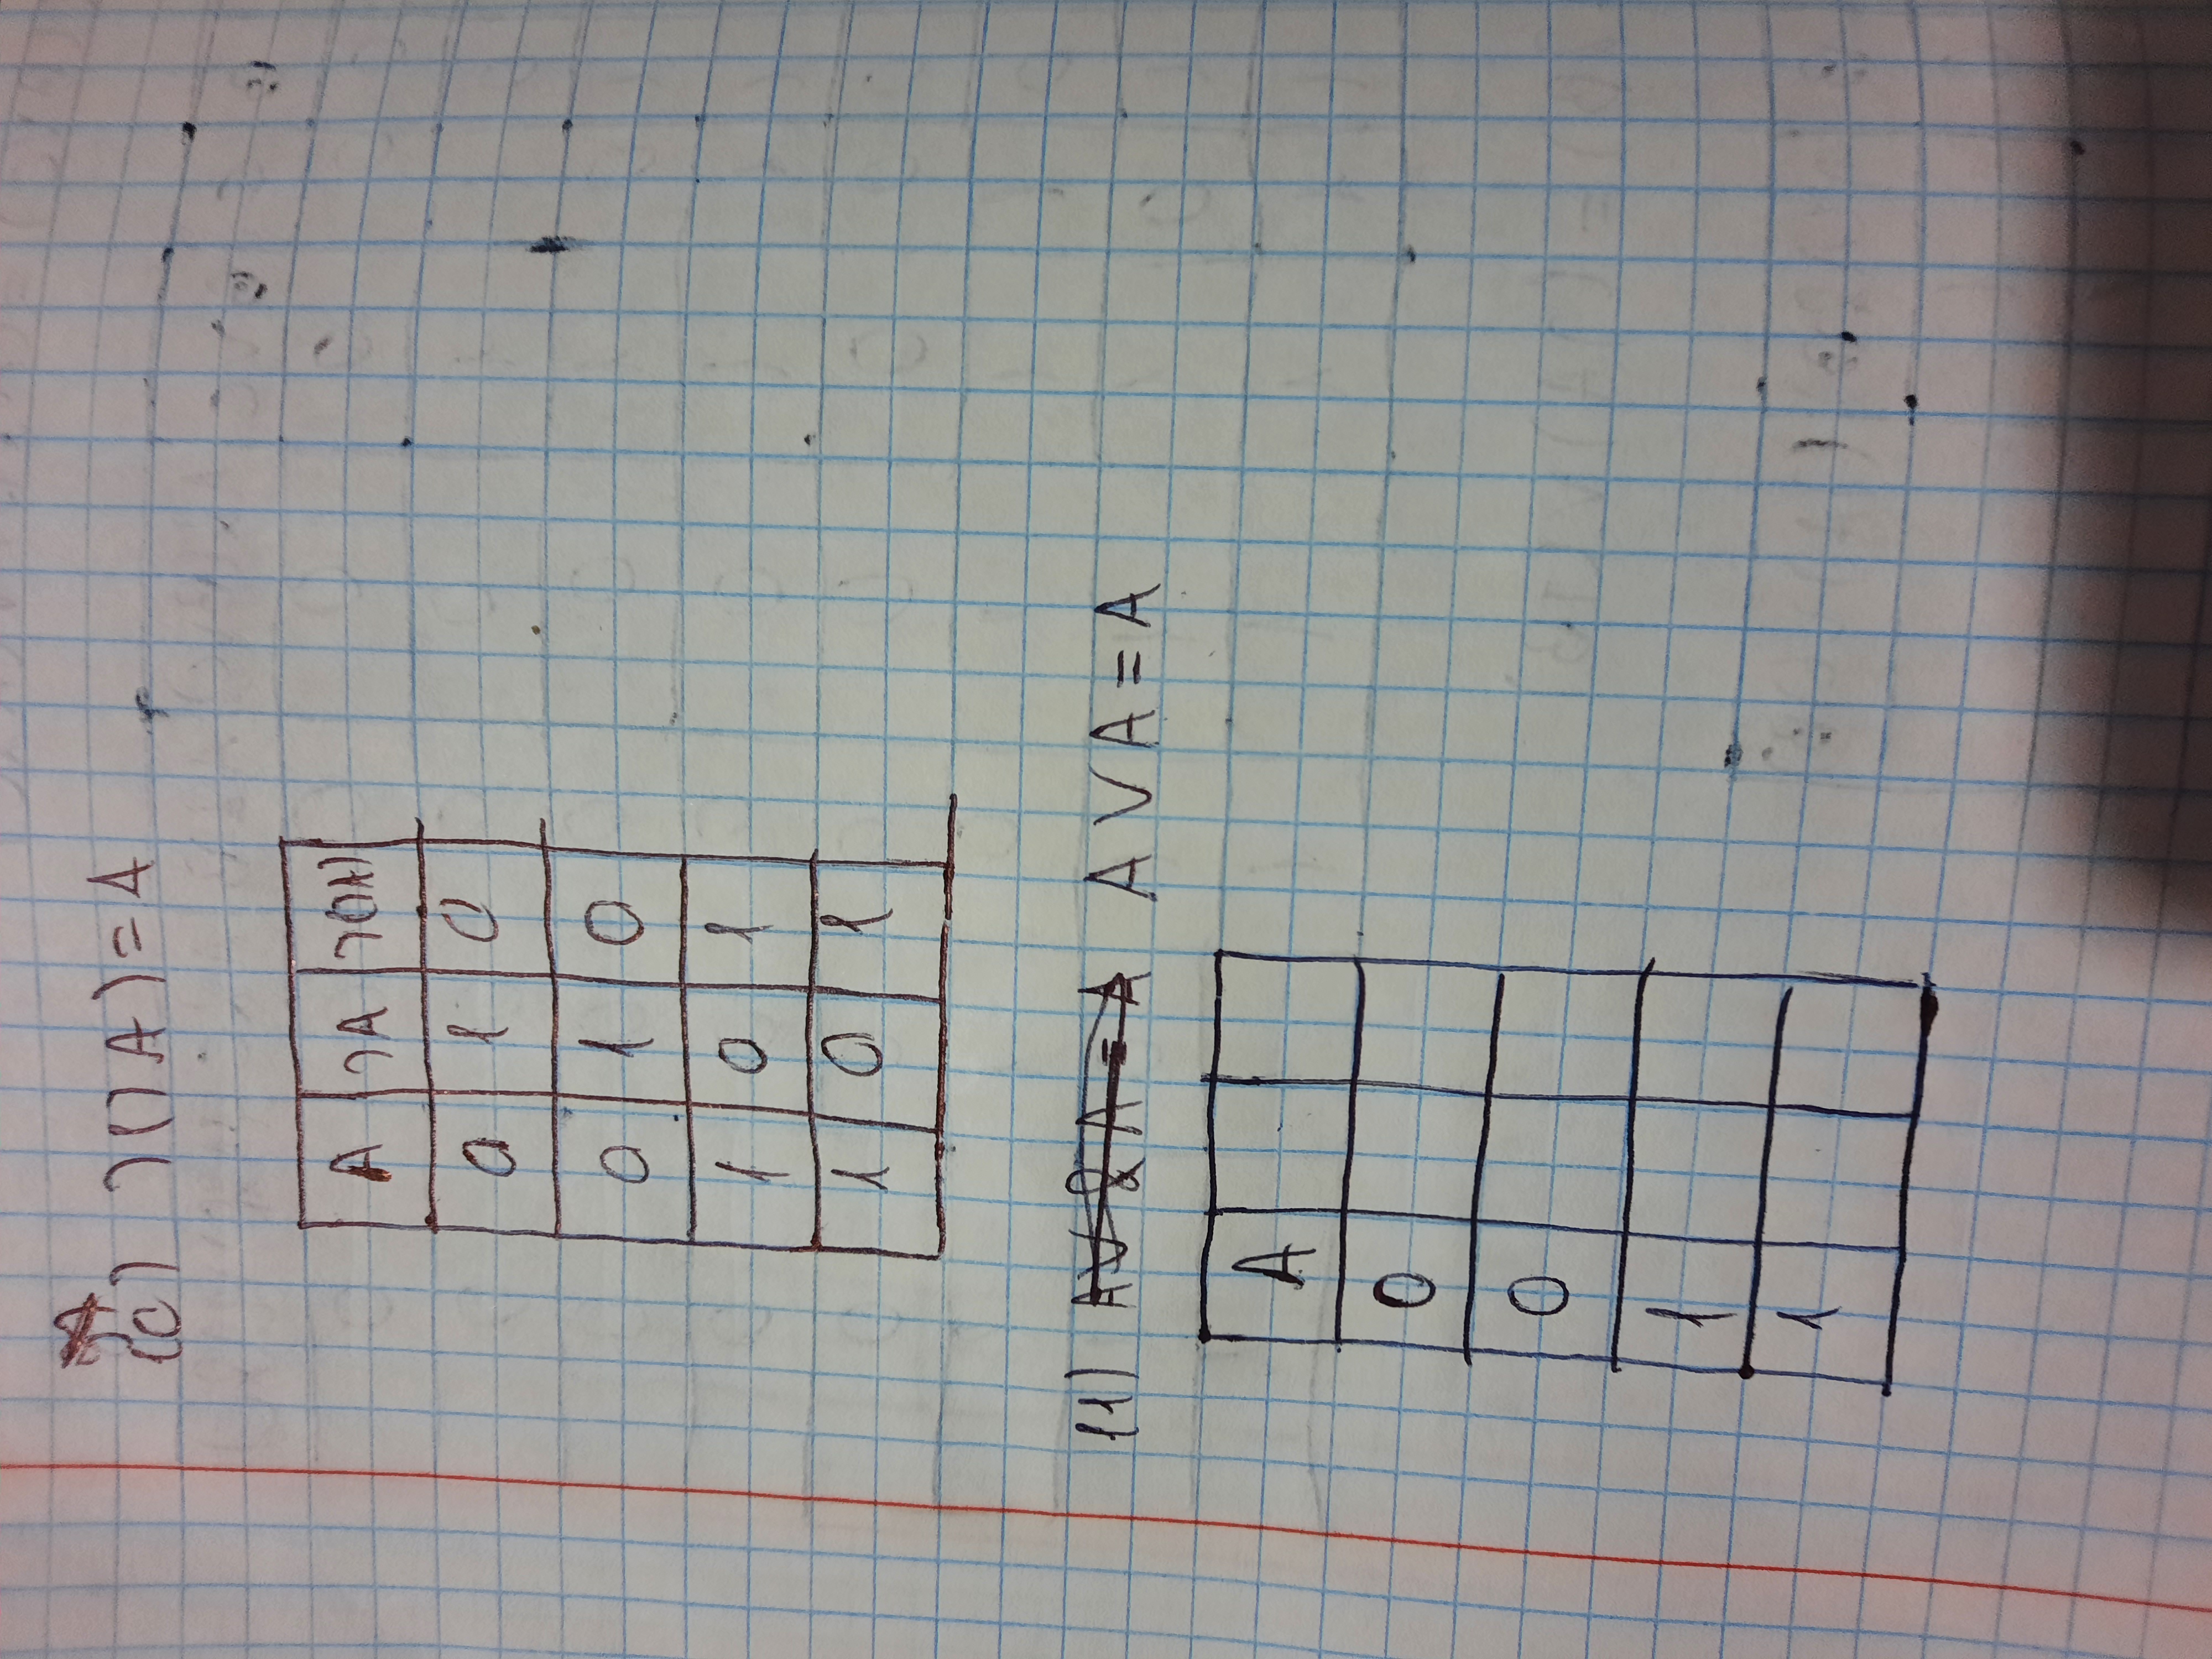 (0) ¬(¬A) = A
A ¬A ¬(¬A)
0 1 0
0 1 0
1 0 1
1 0 1
(1) A V A = A
A
0
0
1
1